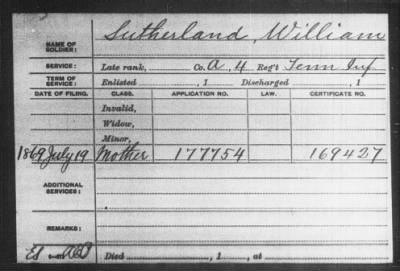 Sutherland, William
NAME OF SOLDIER:
SERVICE: Late rank, Co. A, 4 Reg't Tenn Inf
TERM OF SERVICE: Enlisted , 1 Discharged , 1
DATE OF FILING. CLASS. APPLICATION NO. LAW. CERTIFICATE NO.
Invalid,
Widow,
Minor,
1869 July 19 Mother 177754 169427
ADDITIONAL SERVICES:
REMARKS:
Died , 1 , at